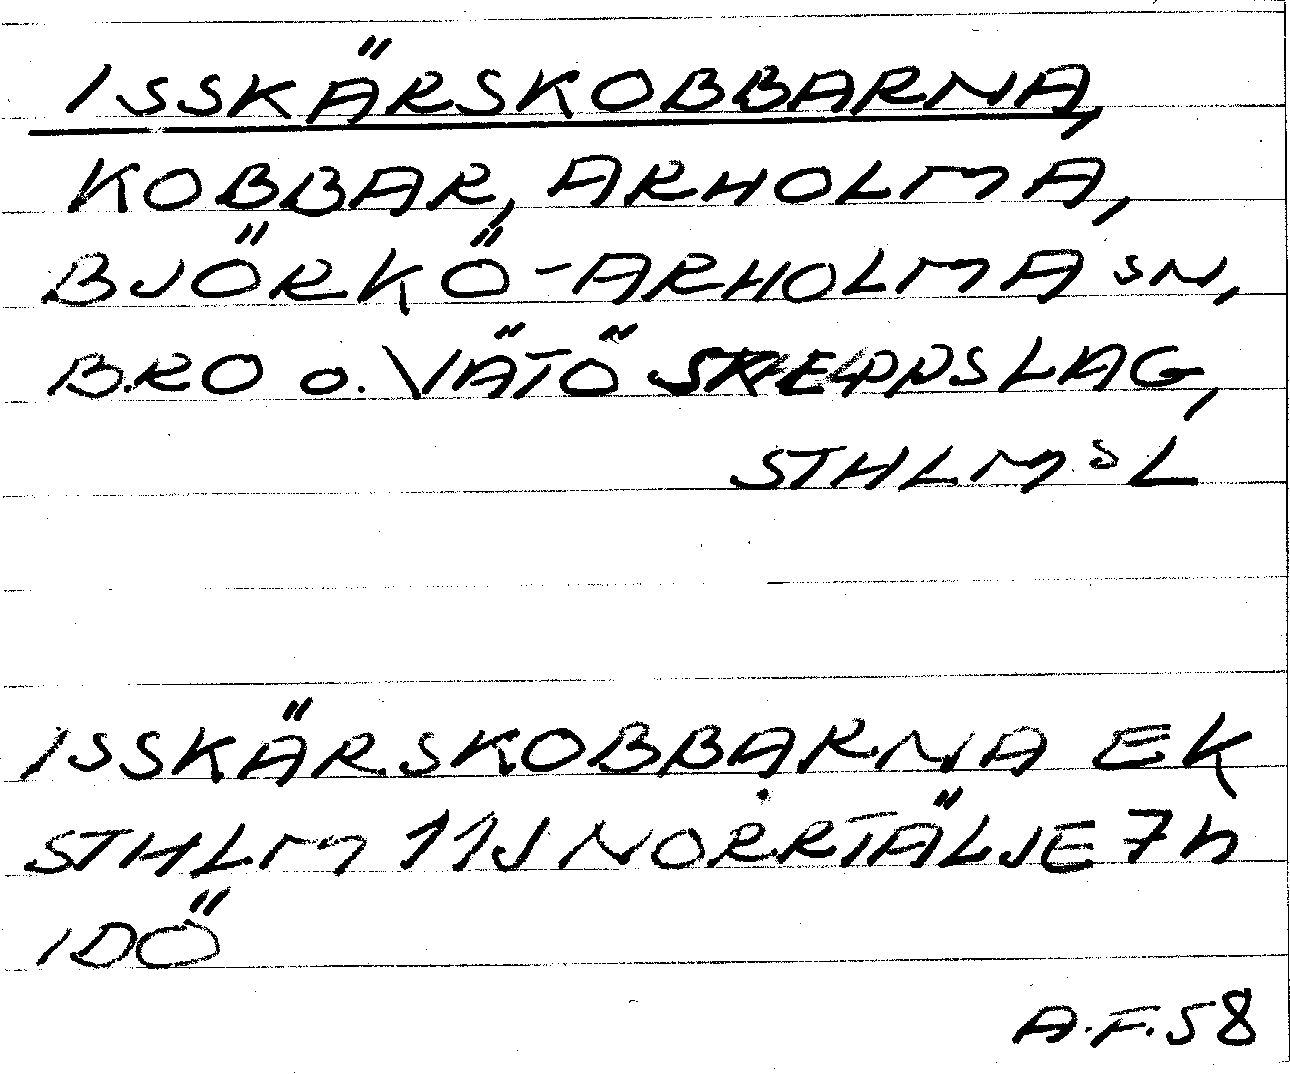 ISSKÄRSKOBBARNA,
KOBBAR, ARHOLMA,
BJÖRKÖ-ARHOLMA SN,
BRO o. VÄTÖ SKEPPSLAG,
STHLMS L
ISSKÄRSKOBBARNA EK
STHLM 11J NORRTÄLJE 7h
IDÖ
A.F. 58